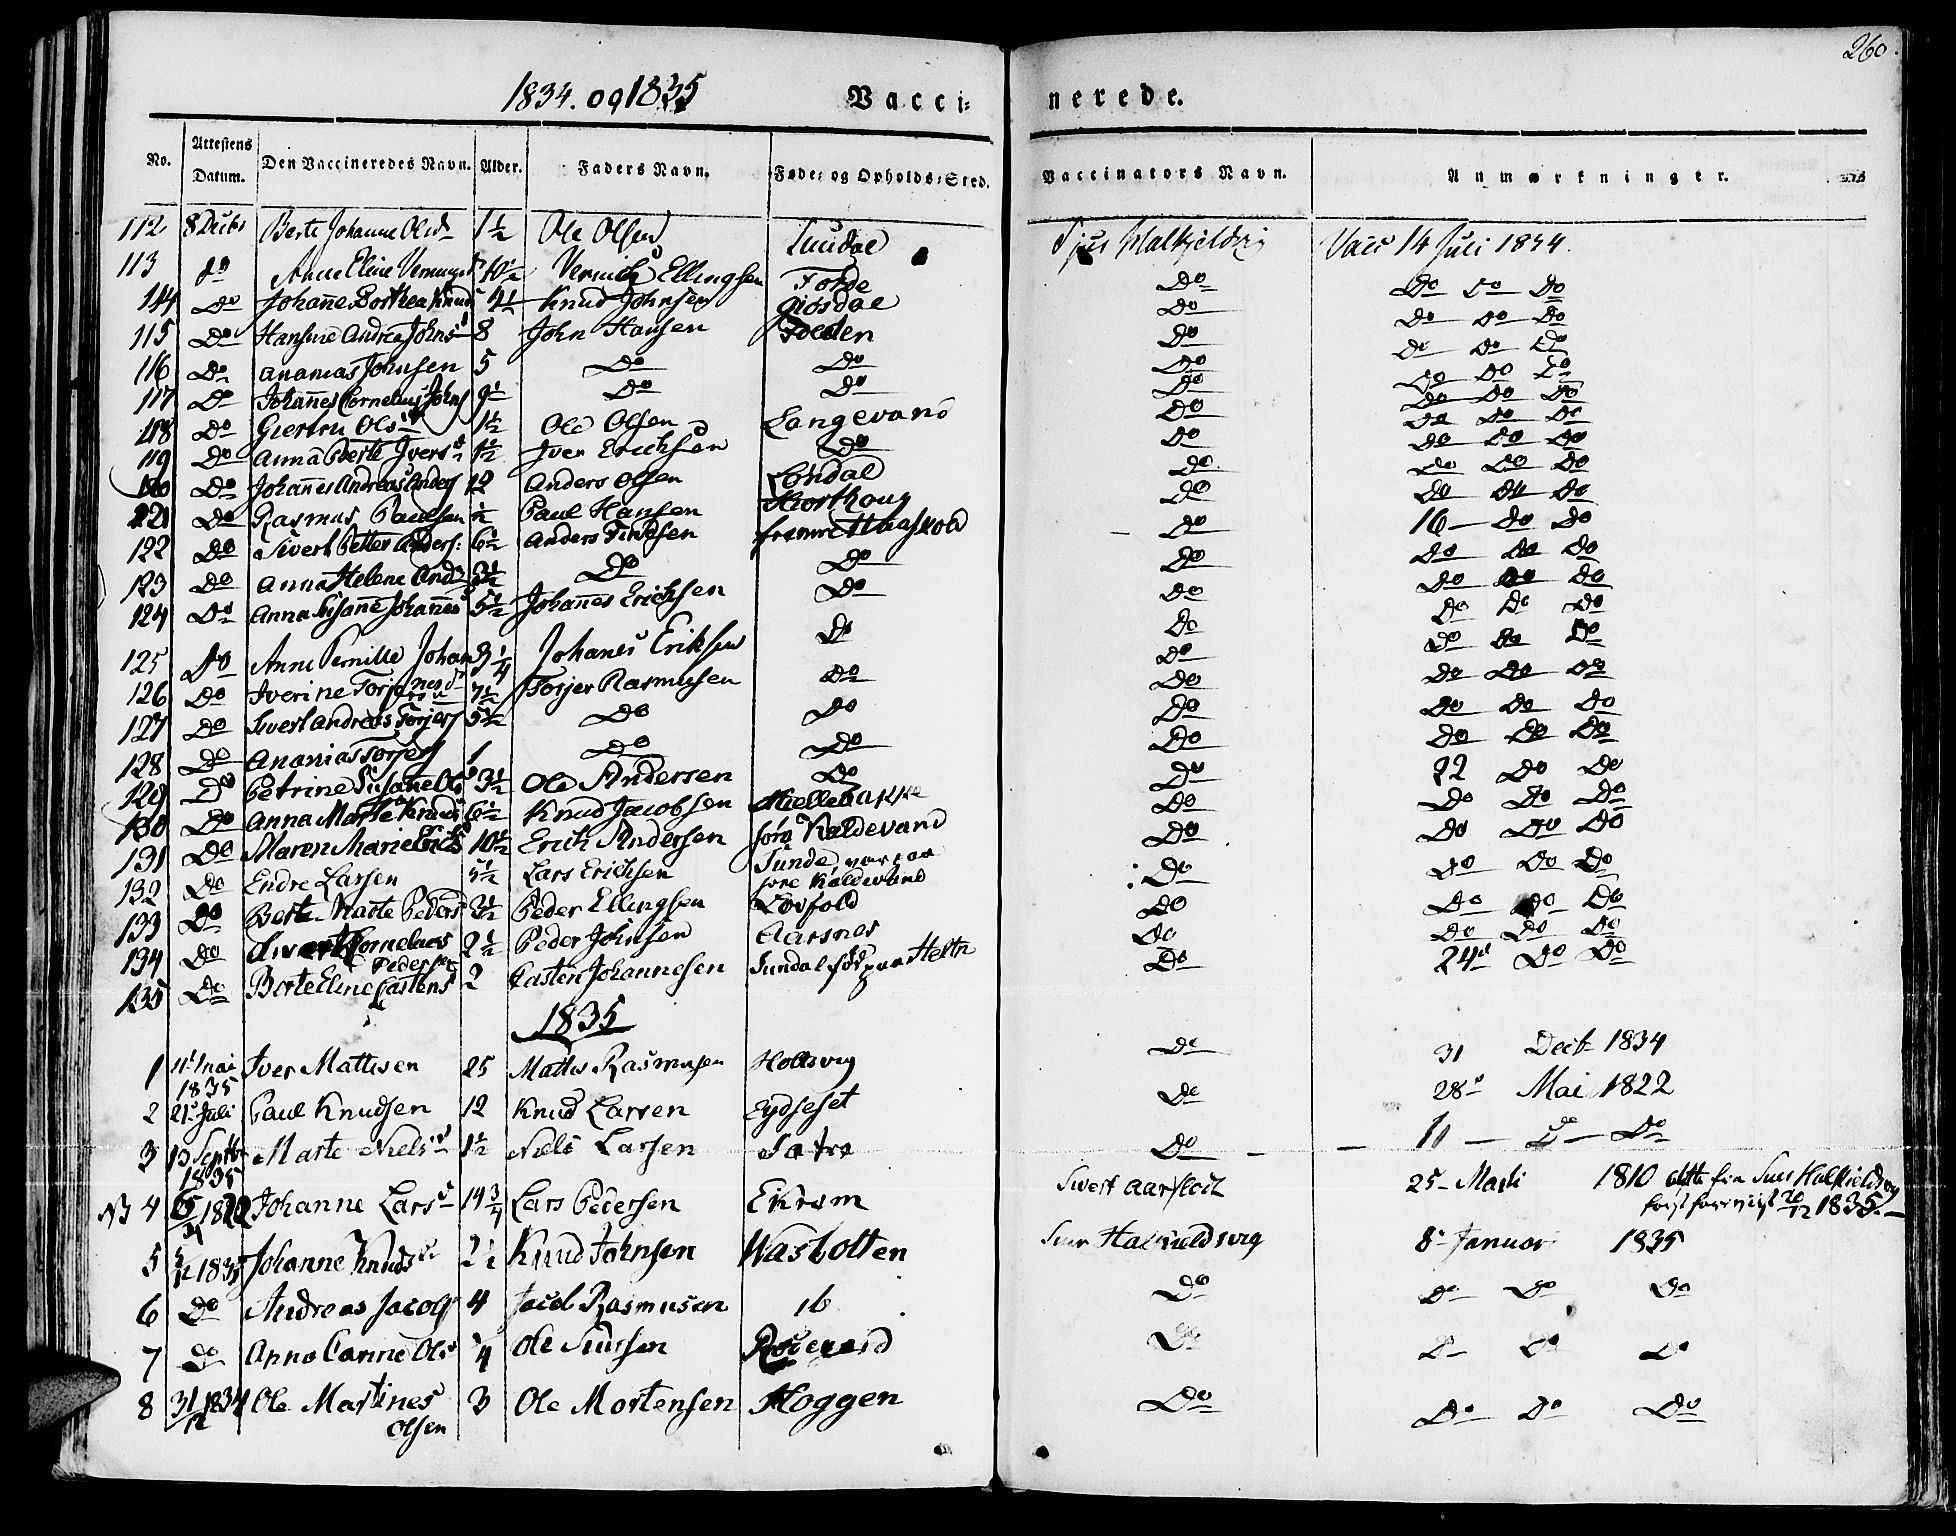 260.
1834. og 1835 Vaccinerede.
No. Attestens Datum. Den Vaccineredes Navn. Alder. Faders Navn. Føde- og Opholds-Sted. Vaccinators Navn. Anmærkninger.
112 8 Decbr Berte Johanne Olsd 1½ Ole Olsen Vacc 14 Juli 1834.
113 do Anne Eline 10½ Ellingsen Do Do Do Do
114 Do Johañe Dorthea Knuds 4½ Knud Johnsen Giosdal Do Do Do Do
115 Do Hansine Andrea Johnsd 8 John Hansen Do Do Do Do
116 Do Ananias Johnsen 5 Do Do Do Do Do Do
117 Do Johañes Cornelius Johns 9½ Do Do Do Do Do Do
118 Do Giertru Olsd 1½ Ole Olsen Langevand Do Do Do Do
119 Do Anna Berte Iversd 1½ Iver Ericksen Do Do Do Do Do
120 Do Johañes Andreas Anders 12 Anders Olsen Løndal Do Do Do Do
121 Do Rasmus Paulsen ½ Paul Hansen Hiorthoug Do Do Do Do
122 Do Sivert Petter Anders: 6½ Anders Do 16 — Do Do
123 Do Anna Helene And 3½ Do Do Do Do Do Do
124 Do Anna Susañe Johañes 5½ Johañes Ericksen Do Do Do Do Do
125 Do Anne Pernille Johan 3¼ Johanes Eriksen Do Do Do Do Do
126 Do Iverine 7½ Torjer Rasmusen Do Do Do Do Do
127 Do Sivert Andreas Torjers 5½ Do Do Do Do Do Do
128 Do Ananias Torjers 1 Do Do Do Do Do Do
129 Do Petrine Susañe Ols 3½ Ole Andersen Do Do 22 Do Do
130 Do Anna Marte Knuds 6½ Knud Jacobsen Mellebakke Do Do Do Do
131 Do Maren Marie Ericks 10½ Erick Andersen Kaldevand Do Do Do Do
132 Do Endre Larsen 5½ Lars Ericksen Do Do Do Do
133 Do Berte Marte Peders 3½ Peder Ellingsen Løvfold Do Do Do Do
134 Do Sivert Cornelius Pedersen 2½ Peder Johnsen Aarsnes Do Do Do Do
135 Do Berte Eline Castens 2 Casten Johannesen Sundal Do 24d Do Do
1835
1 11t Mai 1835 Iver Mattisen 25 Mattis Rasmusen Holtsvig Do 31 Decb 1834
2 21d Juli Paul Knudsen 12 Knud Larsen Eydseset Do 28d Mai 1822
3 13 Septbr 1835 Marte Nielsd 1½ Niels Larsen Sætre Do 10 — Do — Do
4 Johanne Larsd 14¾ Lars Pedersen Ekrem Sivert Aarskoit 25 Marti 1810
5 1835 Johanne Knudsd 2½ Knud Johnsen Wasbotten Siur Halkieldsvig 8 Januar 1835
6 Do Andreas Jacobs 4 Jacob Rasmusen ib Do Do Do Do
7 Do Anna Canne Ols ¼ Ole Siursen Do Do Do Do
8 31/12 1834 Ole Martines Olsen 3 Ole Mortensen Hoggen Do Do Do Do